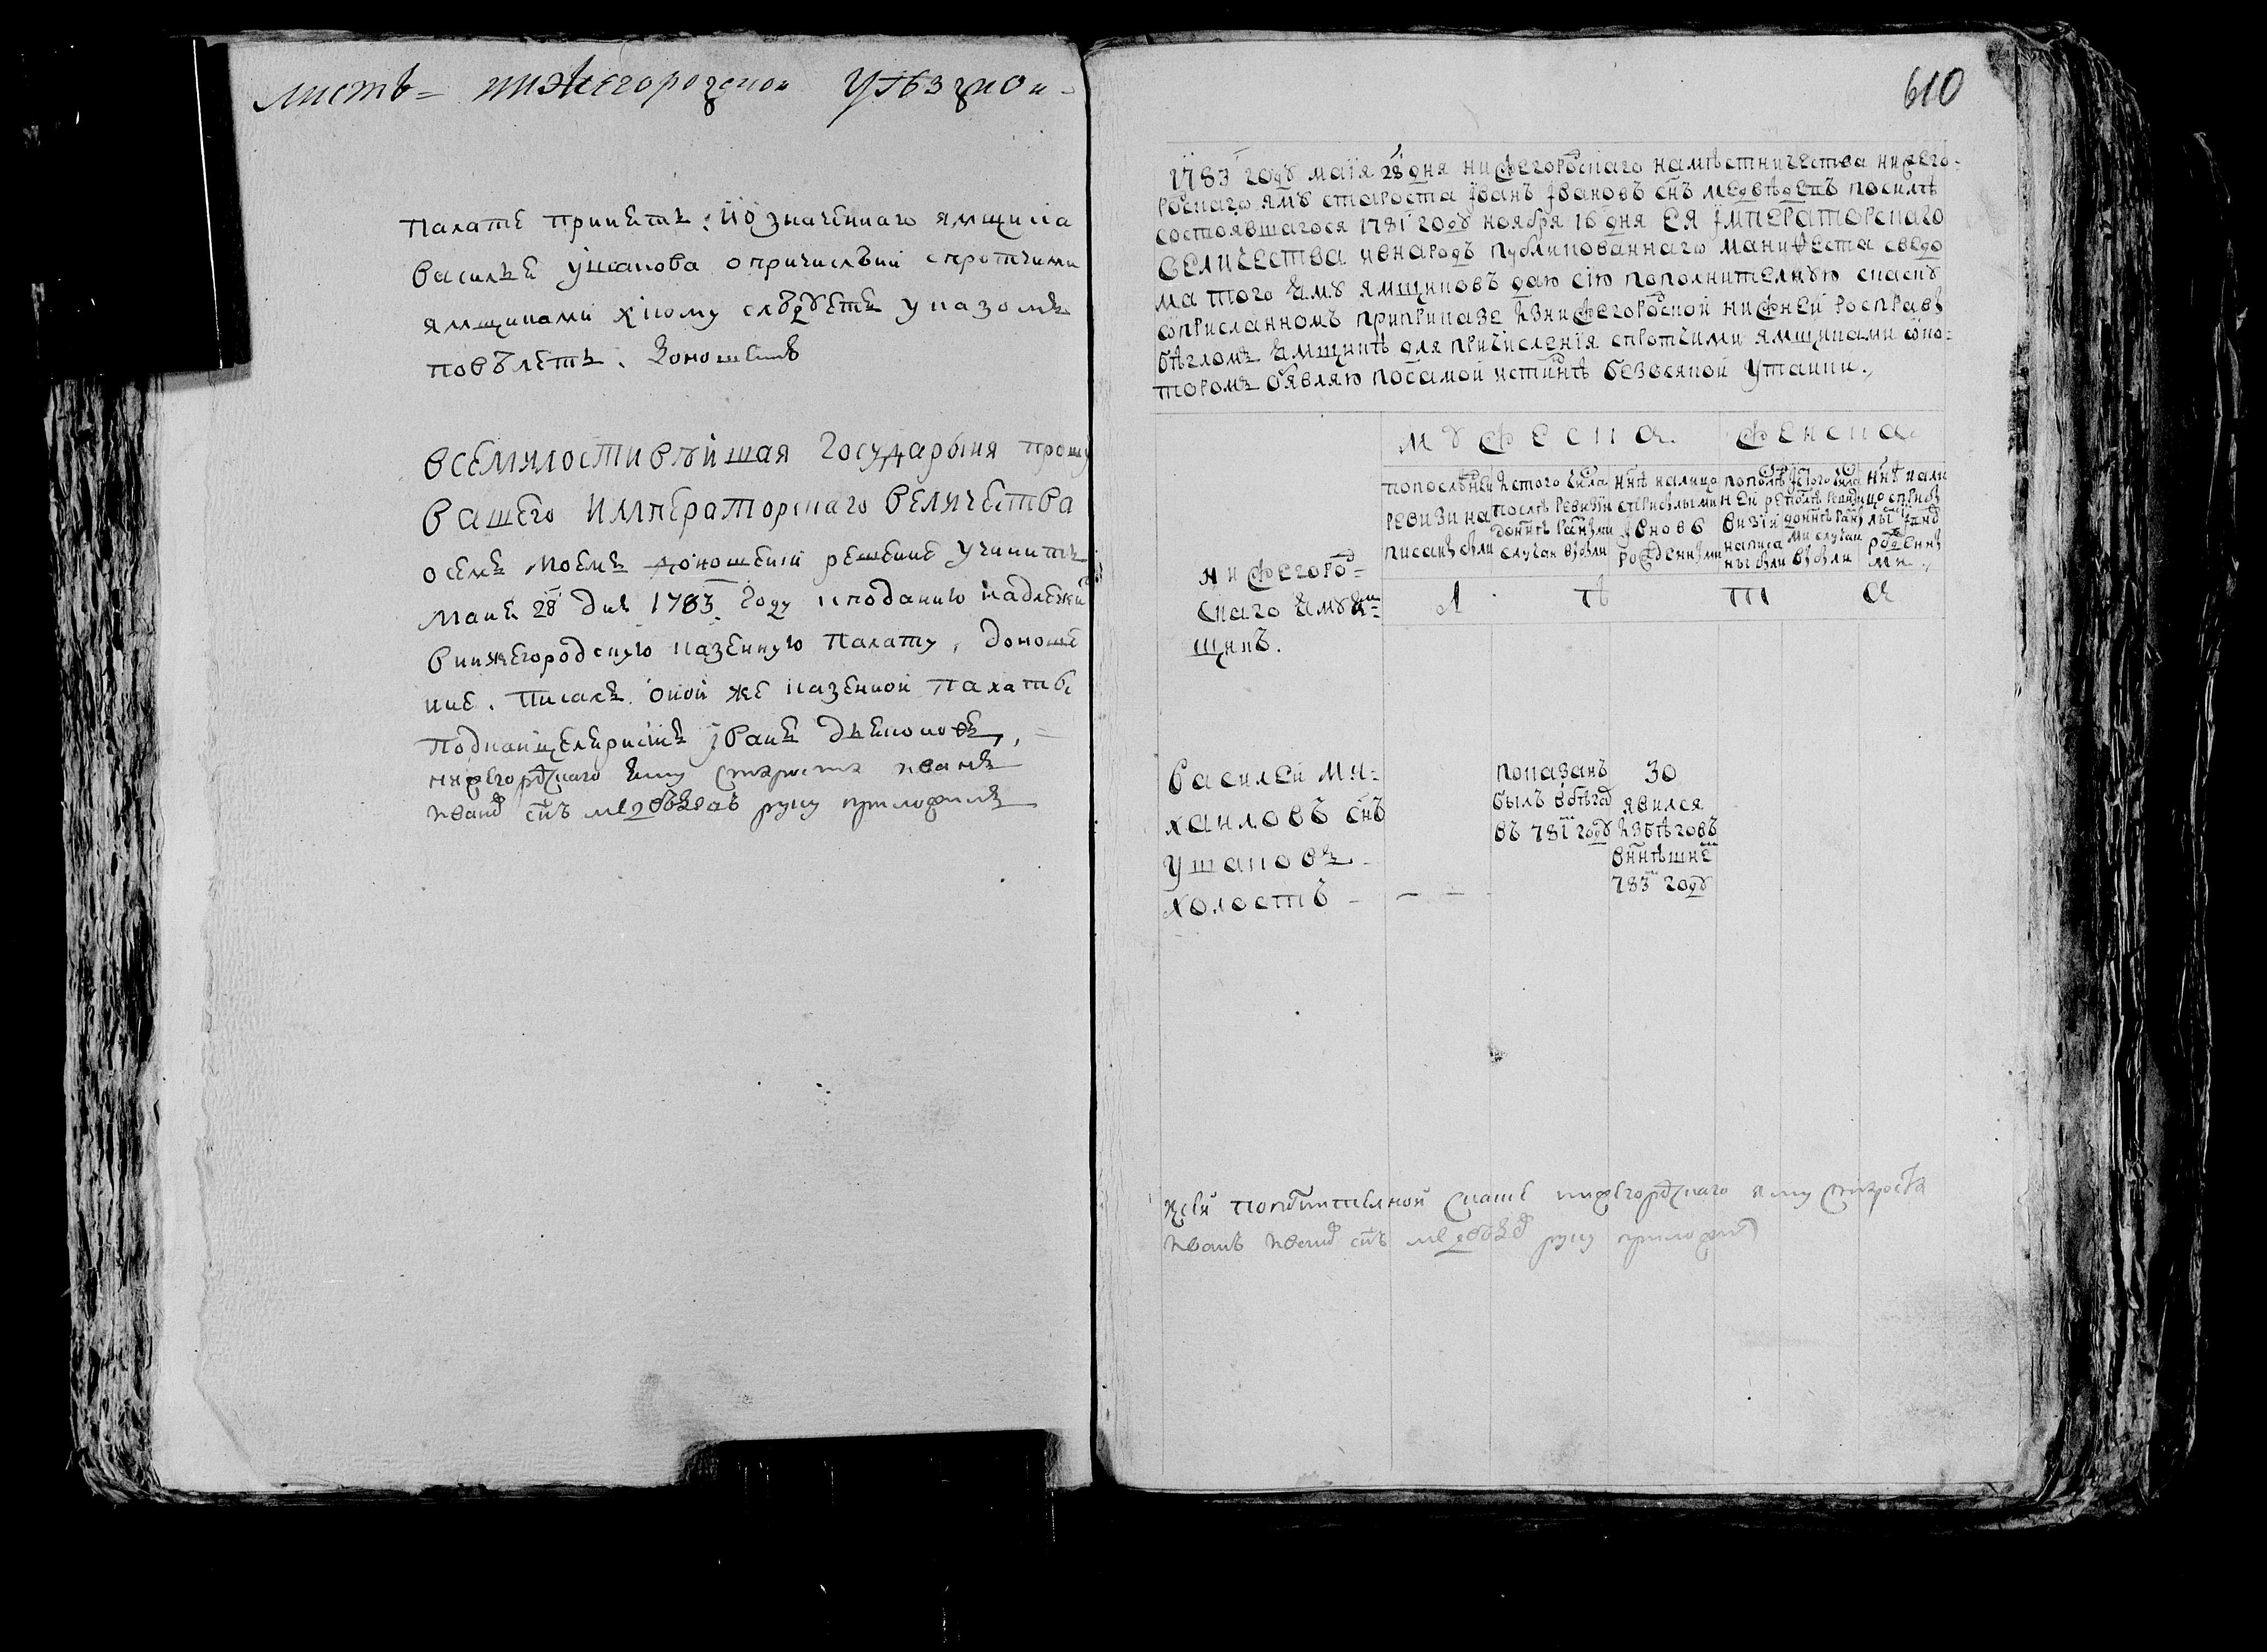 листъ = нижегородской уѣздной
палате принеть : ѝ ѡзначеннаго ямщика
василья ушакова опричислѣнии спротчими
ямщиками кѣому слѣдуетъ указомъ
повѣлеть . доношенiѣ
всемилостивѣйшая государыня прошу
вашего императорскаго величества
осемъ моемъ доношении решение учинить
маия 28 дня 1783 году кподанию надлежи
внижегородскую казенную палату , доноше
ние . писалъ оной же казенной палаты
подканцеляристъ Iванъ дьяконовъ ,
нижегородскаго яму староста иванъ
иванов снъ медведевъ руку приложилъ
610
1783 году маiя 28 дня нижегородскаго намѣстничества нижего-
родскаго яму староста Iванъ Iвановъ снъ медведевъ посилѣ
состоявшагося 1781 году ноября 16 дня ЕЯ IМПЕРАТОРСКАГО
ВЕЛИЧЕСТВА ивнародъ публикованнаго манифеста сведо
ма того яму ямщиковъ даю сiю пополнительную скаску
ѡприсланномъ приприказе изнижегородской нижней росправы
бѣгломъ ямщикѣ для причисленiя спротчими ямщиками ѡко-
торомъ обявляю посамой истиннѣ безвсякой утайки .,
мужеска . женска
попослѣдней ревизи написаны были
истого числа послѣ ревизiи до ннѣ разными случаи выбыли
ннѣ налицо сприбылыми и вновь рожденными
попослѣдней ревизiи написаны были
изтого числа послѣ ревизи до ннѣ разными случаи выбыли
ннѣ налицо сприбылыми и вновь рожденными .,
нижегород-
скаго яму ям-
щикъ .
василей ми-
хаиловъ снъ
ушаковъ -
холостъ - — —
показанъ
былъ вбѣгах
въ 781 году
30
явился
избѣговъ
внѣшнем
783 году
ксей пополнительной скаске нижегородскаго яму староста
иванъ иванов снъ медведев руку приложил